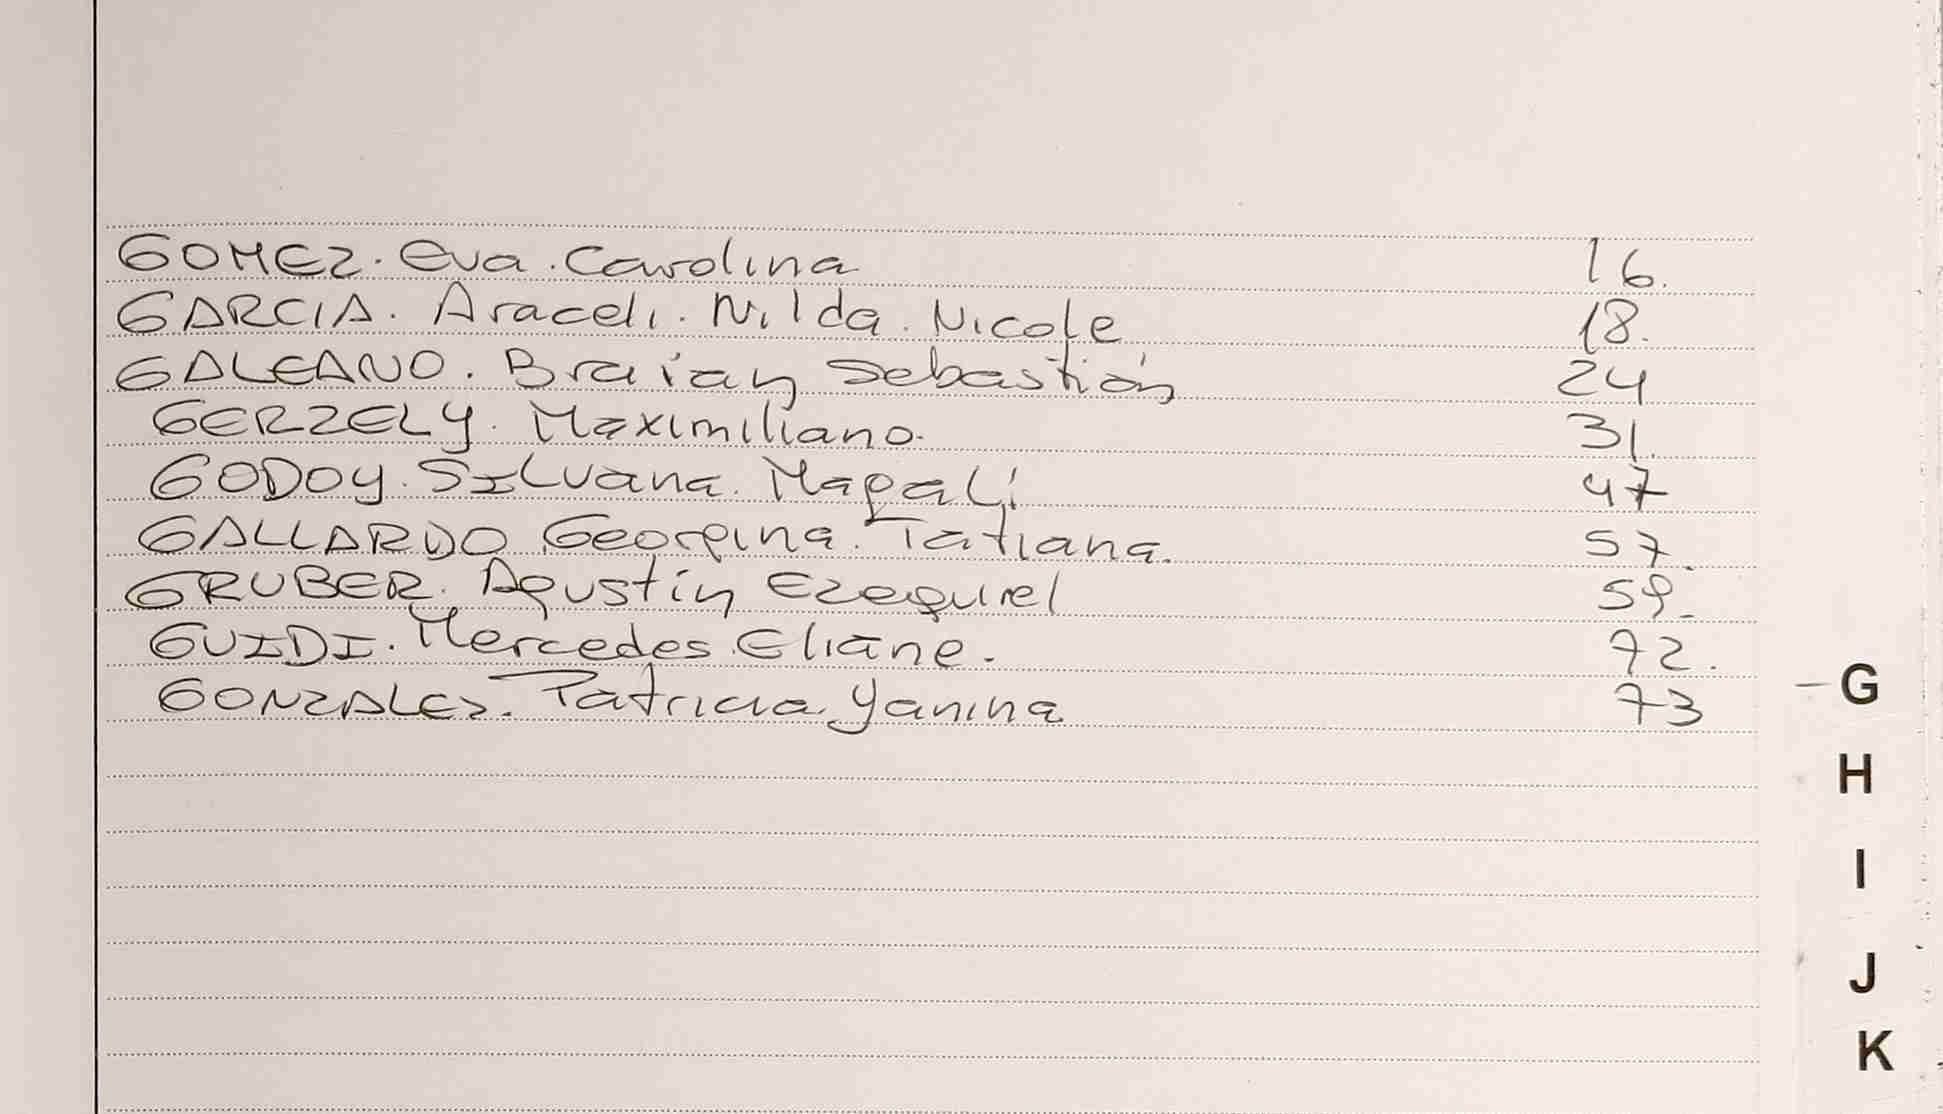 GOMEZ. Eva. Carolina 16.
GARCIA. Araceli. Nilda. Nicole 18.
GALEANO. Braian Sebastián 24
GERZELY. Maximiliano. 31.
GODOY. SILvana. Magalí 47
GALLARDO Georgina. Tatiana. 57.
GRUBER. Agustín Ezequiel 59.
GUIDI. Mercedes Eliane. 72.
GONZALEZ. Patricia Yanina 73
G
H
I
J
K